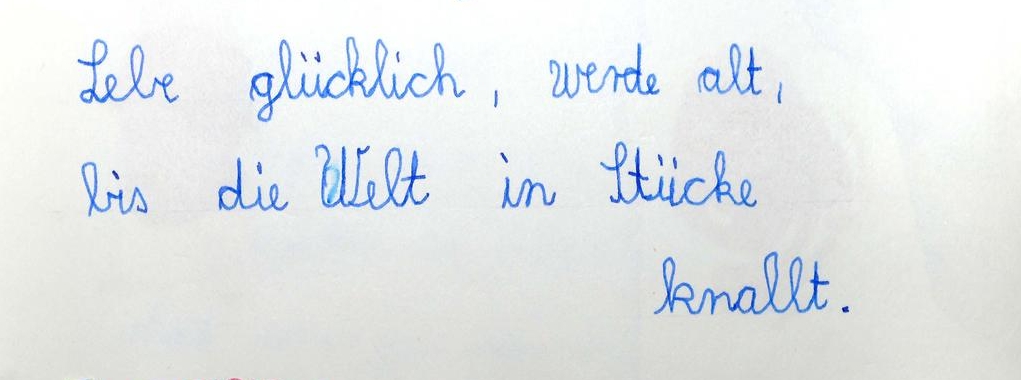 Lebe glücklich, werde alt,
bis die Welt in Stücke
knallt.